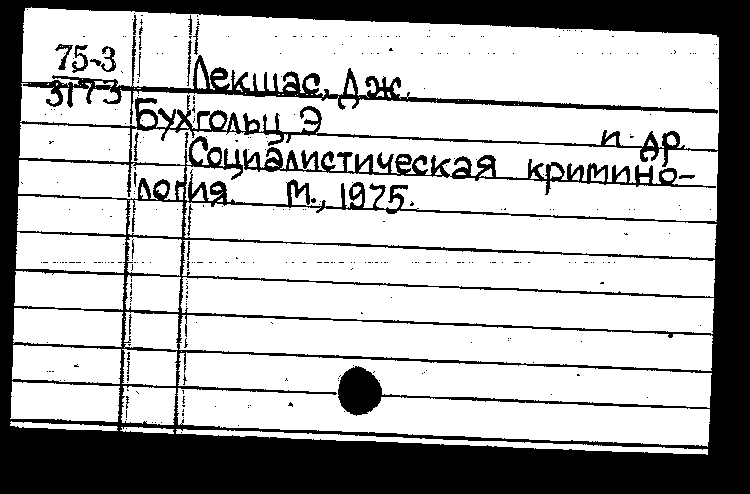 75-3
3173
Лекшас, Дж.
Бухгольц, Э
и др.
Социалистическая кримино-
логия. М., 1975.